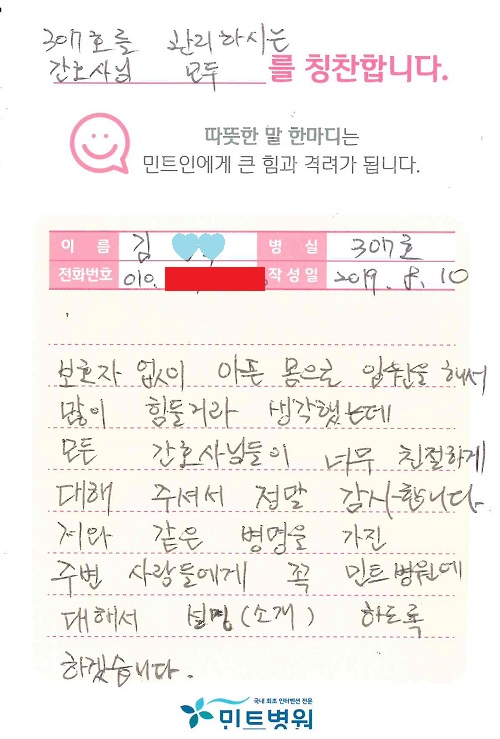 307호를 관리하시는
간호사님 모두 를 칭찬합니다.
따뜻한 말 한마디는
민트인에게 큰 힘과 격려가 됩니다.
이 름 김 병 실 307호
전화번호 010. 작성일 2019. 8. 10
보호자 없이 아픈 몸으로 입원을 해서
많이 힘들거라 생각했는데
모든 간호사님들이 너무 친절하게
대해 주셔서 정말 감사합니다.
저와 같은 병명을 가진
주변 사람들에게 꼭 민트병원에
대해서 설명(소개) 하도록
하겠습니다.
국내 최초 인터벤션 전문
민트병원